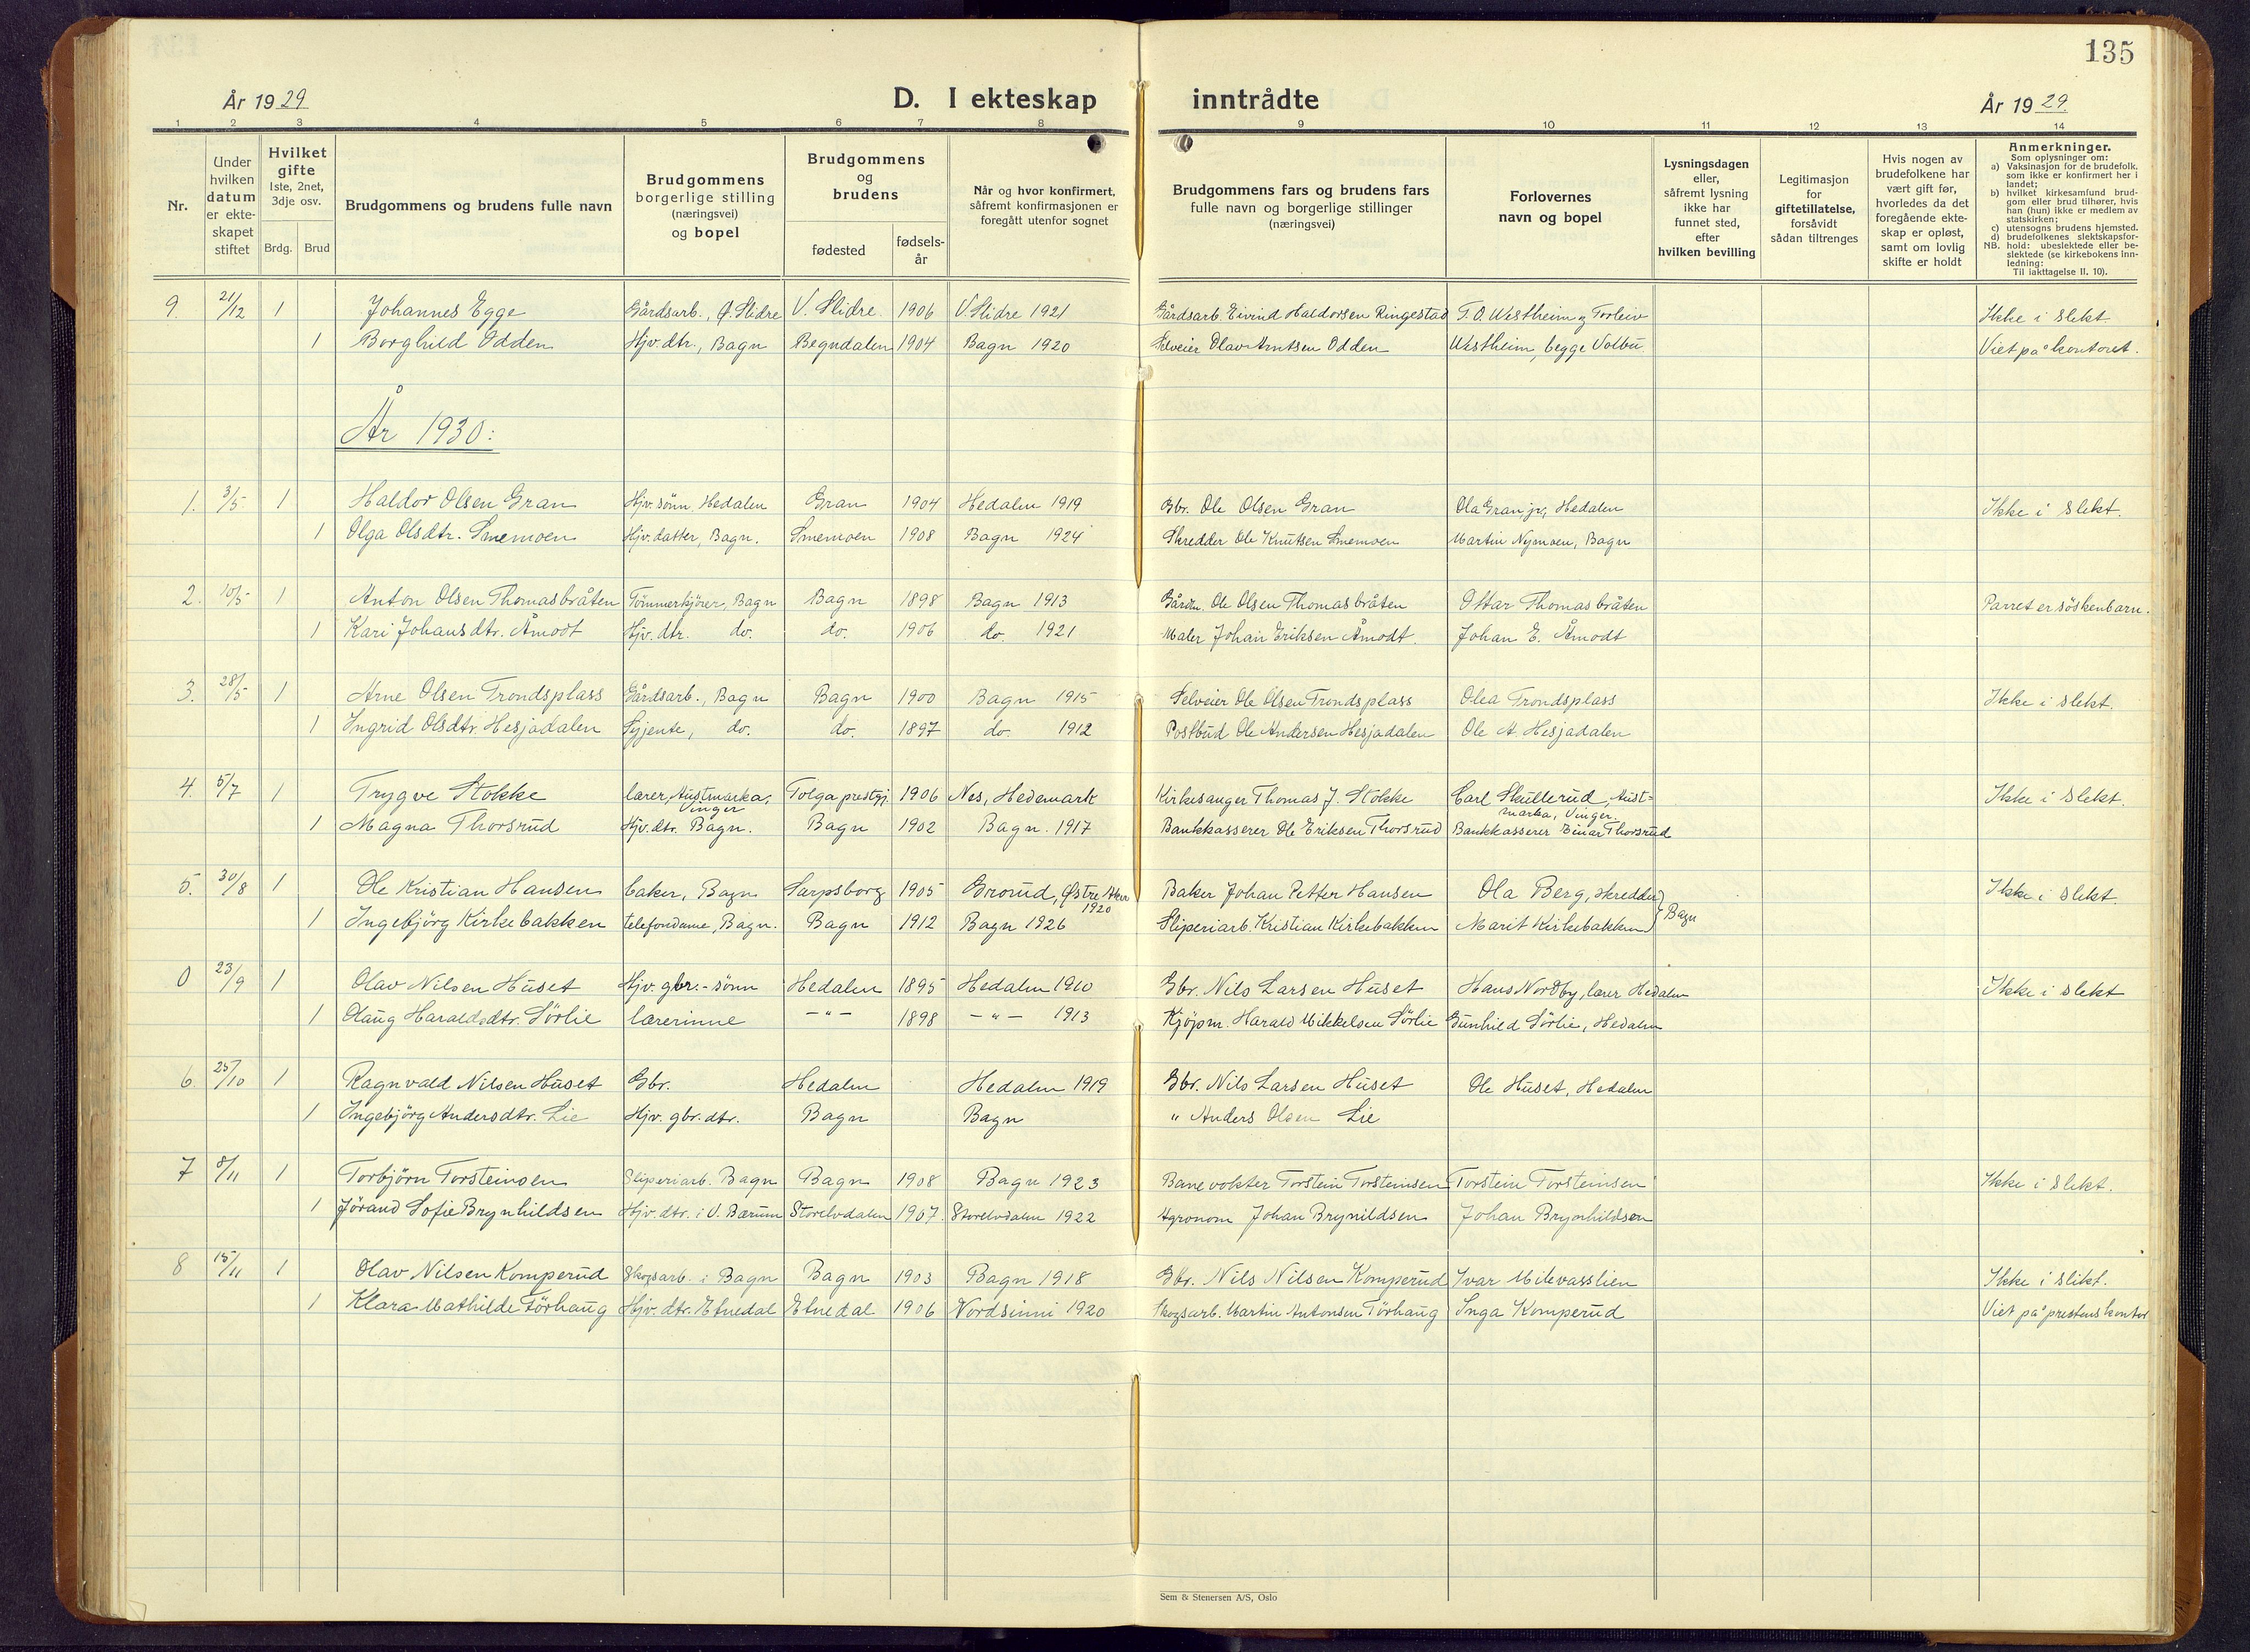 135
År 1929 D. I ekteskap inntrådte År 1929
1 2 3 4 5 6 7 8 9 10 11 12 13 14
Nr.
Under hvilken datum er ekteskapet stiftet
Hvilket gifte 1ste, 2net, 3dje osv.
Brdg. Brud
Brudgommens og brudens fulle navn
Brudgommens borgerlige stilling (næringsvei) og bopel
Brudgommens og brudens
fødested fødselsår
Når og hvor konfirmert, såfremt konfirmasjonen er foregått utenfor sognet
Brudgommens fars og brudens fars fulle navn og borgerlige stillinger (næringsvei)
Forlovernes navn og bopel
Lysningsdagen eller, såfremt lysning ikke har funnet sted, efter hvilken bevilling
Legitimasjon for giftetillatelse, forsåvidt sådan tiltrenges
Hvis nogen av brudefolkene har vært gift før, hvorledes da det foregående ekteskap er opløst, samt om lovlig skifte er holdt
Anmerkninger.
Som oplysninger om:
a) Vaksinasjon for de brudefolk, som ikke er konfirmert her i landet;
b) hvilket kirkesamfund brudgom eller brud tilhører, hvis han (hun) ikke er medlem av statskirken;
c) utensogns brudens hjemsted.
d) brudefolkenes slektskapsforhold: ubeslektede eller beslektede (se kirkebokens innledning:
NB. Til iakttagelse II. 10).
9. 21/12 1 Johannes Egge Gårdsarb., Ø. Slidre V. Slidre 1906 V. Slidre 1921 Gårdsarb. Eivind Haldorsen Ringestad T. O. Westheim og Torleiv Ikke i slekt
1 Borghild Odden Hjv. dtr., Bagn Begndalen 1904 Bagn 1920 Selveier Olav Arntsen Odden Westheim, begge Volbu. Viet på kontoret.
År 1930:
1. 3/5 1 Haldor Olsen Gran Hjv. sönn Hedalen Gran 1904 Hedalen 1919 Gbr. Ole Olsen Gran Ola Gran jr., Hedalen Ikke i slekt.
1 Olga Olsdtr. Smemoen Hjv. datter, Bagn. Smemoen 1908 Bagn 1924 Skredder Ole Knutsen Smemoen Martin Nymoen, Bagn
2. 10/5 1 Anton Olsen Thomasbråten Tömmerkjörer, Bagn Bagn 1898 Bagn 1913 Gårdm. Ole Olsen Thomasbråten Ottar Thomasbråten Parret er söskenbarn.
1 Kari Johansdtr. Åmodt Hjv. dtr. do. do. 1906 do. 1921 Maler Johan Eriksen Åmodt. Johan E. Åmodt
3. 28/5 1 Arne Olsen Trondsplass Gårdsarb., Bagn Bagn 1900 Bagn 1915 Selveier Ole Olsen Trondsplass Olea Trondsplass Ikke i slekt.
1 Ingrid Olsdtr. Hesjadalen Syjente, do. do. 1897 do. 1912 Postbud Ole Andersen Hesjadalen Ole A. Hesjadalen
4. 5/7 1 Trygve Stokke lærer, Austmarka, Vinger Tolga prestgj. 1906 Nes, Hedemark Kirkesanger Thomas J. Stokke Carl Skullerud, Austmarka, Vinger. Ikke i slekt.
1 Magna Thorsrud Hjv. dtr. Bagn. Bagn 1902 Bagn. 1917 Bankkasserer Ole Eriksen Thorsrud Bankkasserer Einar Thorsrud
5. 30/8 1 Ole Kristian Hansen baker, Bagn Sarpsborg 1905 Grorud, Østre Aker 1920 Baker Johan Petter Hansen Ola Berg, skredder Ikke i slekt.
1 Ingebjörg Kirkebakken telefondame, Bagn. Bagn 1912 Bagn 1926 Sliperiarb. Kristian Kirkebakken Marit Kirkebakken } Bagn
0 23/9 1 Olav Nilsen Huset Hjv. gbr.-sönn Hedalen 1895 Hedalen 1910 Gbr. Nils Larsen Huset Hans Nordby, lærer Hedalen Ikke i slekt
1 Olaug Haraldsdtr. Sörlie lærerinne -"- 1898 -"- 1913 Kjöpm. Harald Mikkelsen Sörlie Gunhild Sörlie, Hedalen
6. 25/10 1 Ragnvald Nilsen Huset Gbr. Hedalen Hedalen 1919 Gbr. Nils Larsen Huset Ole Huset, Hedalen
1 Ingebjörg Andersdtr. Lie Hjv. gbr. dtr. Bagn Bagn " Anders Olsen Lie
7 8/11 1 Torbjörn Torsteinsen Sliperiarb. Bagn Bagn 1908 Bagn 1923 Banevokter Torstein Torsteinsen Torstein Torsteinsen Ikke i slekt.
1 Jörand Sofie Brynhildsen Hjv. dtr. i V. Bærum Storelvdalen 1907. Storelvdalen 1922 Agronom Johan Brynildsen Johan Brynhildsen
8 15/11 1 Olav Nilsen Komperud Skogsarb. i Bagn Bagn 1903 Bagn 1918 Gbr. Nils Nilsen Komperud Ivar Milevasslien Ikke i slekt.
1 Klara Mathilde Törhaug Hjv. dtr. Etnedal Etnedal 1906 Nordsinni 1920 Skogsarb. Martin Antonsen Törhaug Inga Komperud Viet på prestens kontor
Sem & Stenersen A/S, Oslo